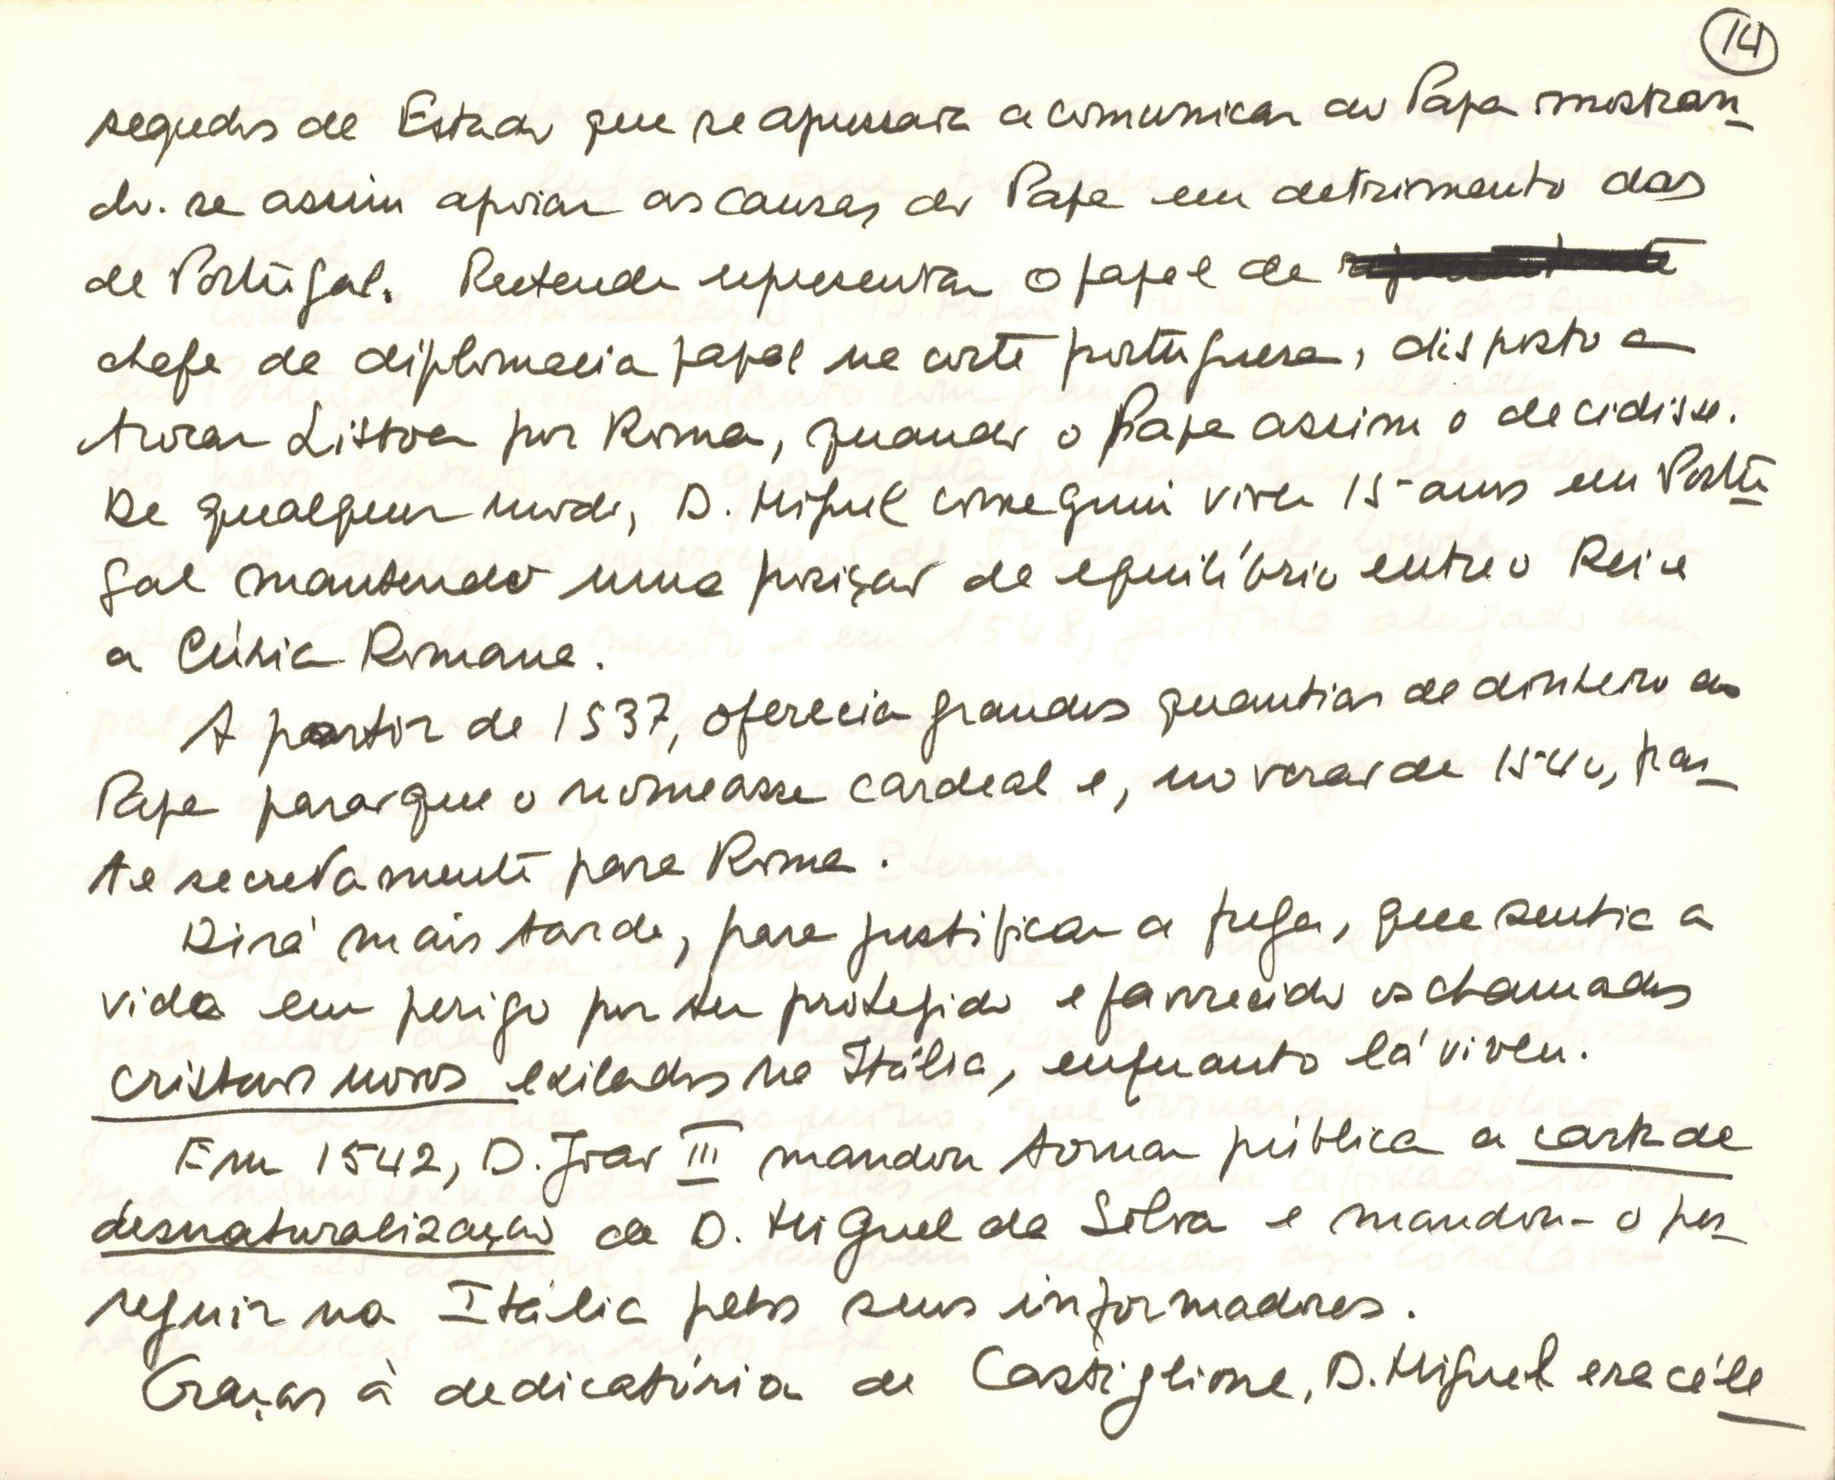 14
segredos de Estado que se apressara a comunicar ao Papa mostran-
do-se assim apoiar as causas do Papa em detrimento das
de Portugal. Pretende representar o papel de
chefe da diplomacia papal na corte portuguesa, disposto a
trocar Lisboa por Roma, quando o Papa assim o decidisse.
De qualquer modo, D. Miguel conseguiu viver 15 anos em Portu-
gal mantendo uma posição de equilíbrio entre o Rei e
a Cúria Romana.
A partir de 1537, oferecia grandes quantias de dinheiro ao
Papa para que o nomeasse cardeal e, no verão de 1540, par-
te secretamente para Roma.
Dirá mais tarde, para justificar a fuga, que sentia a
vida em perigo por ter protegido e favorecido os chamados
cristãos novos exilados na Itália, enquanto lá viveu.
Em 1542, D. João III mandou tornar pública a carta de
desnaturalização de D. Miguel da Silva e mandou-o per-
seguir na Itália pelos seus informadores.
Graças à dedicatória de Castiglione, D. Miguel era céle-